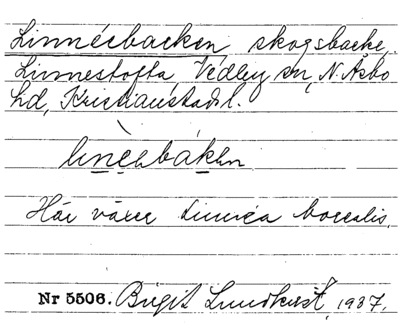 Linnéebacken skogsbacke,
Linnestofta Vedby sn, N. Åsbo
hd, Kristianstads l.
Här växer Linnéa borealis.
Nr 5506. Birgit Lundkvist, 1937.